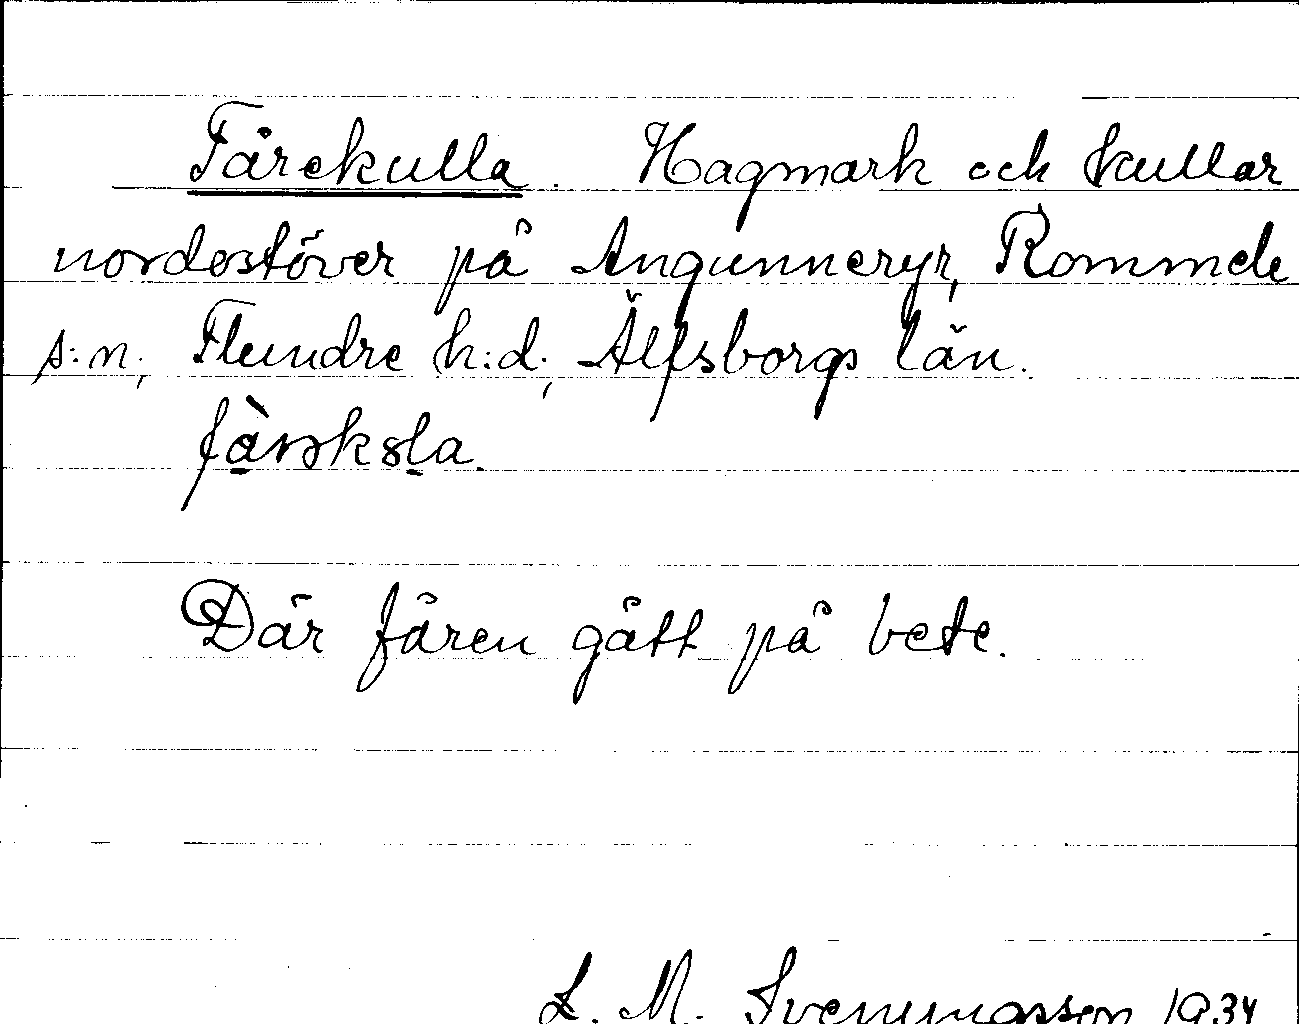 Fårekulla. Hagmark och kullar
nordostöver på Angunneryr, Rommele
s:n, Flundre h:d, Älfsborgs län.
Där fåren gått på bete.
L. M. Svenungsson 1934